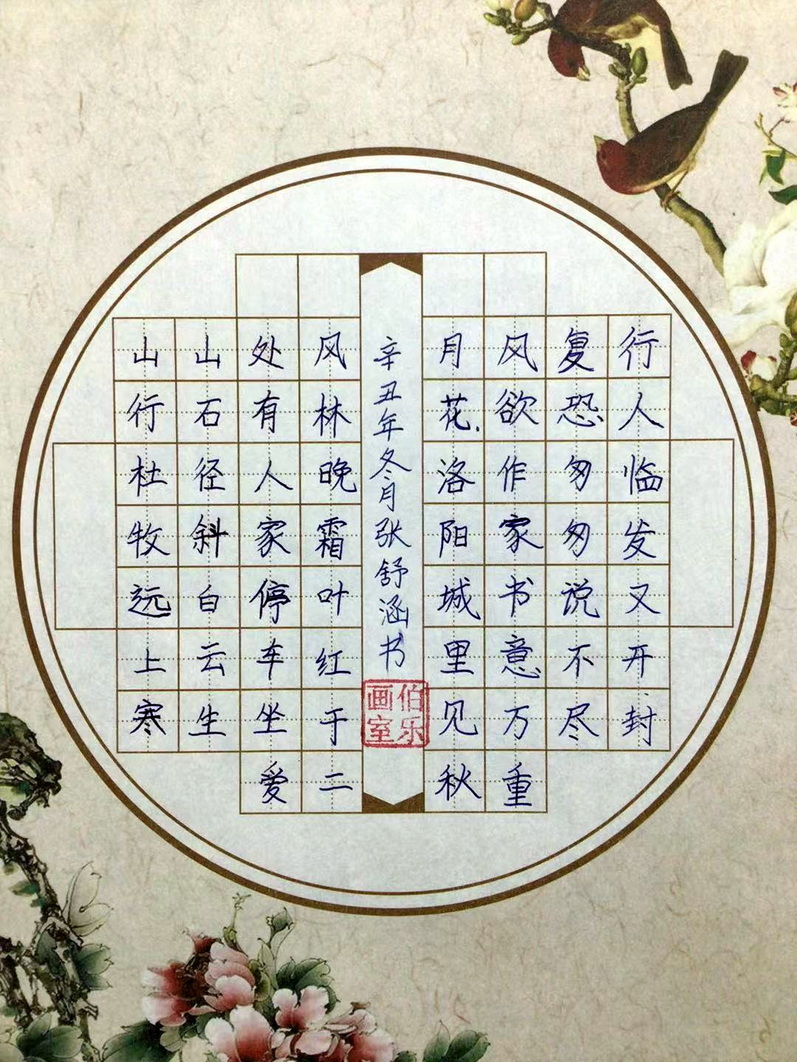 山行杜牧远上寒
山石径斜白云生
处有人家停车坐爱
风林晚霜叶红于二
月花.洛阳城里见秋
风欲作家书意万重
复恐匆匆说不尽
行人临发又开封
辛丑年冬月张舒涵书
伯乐画室